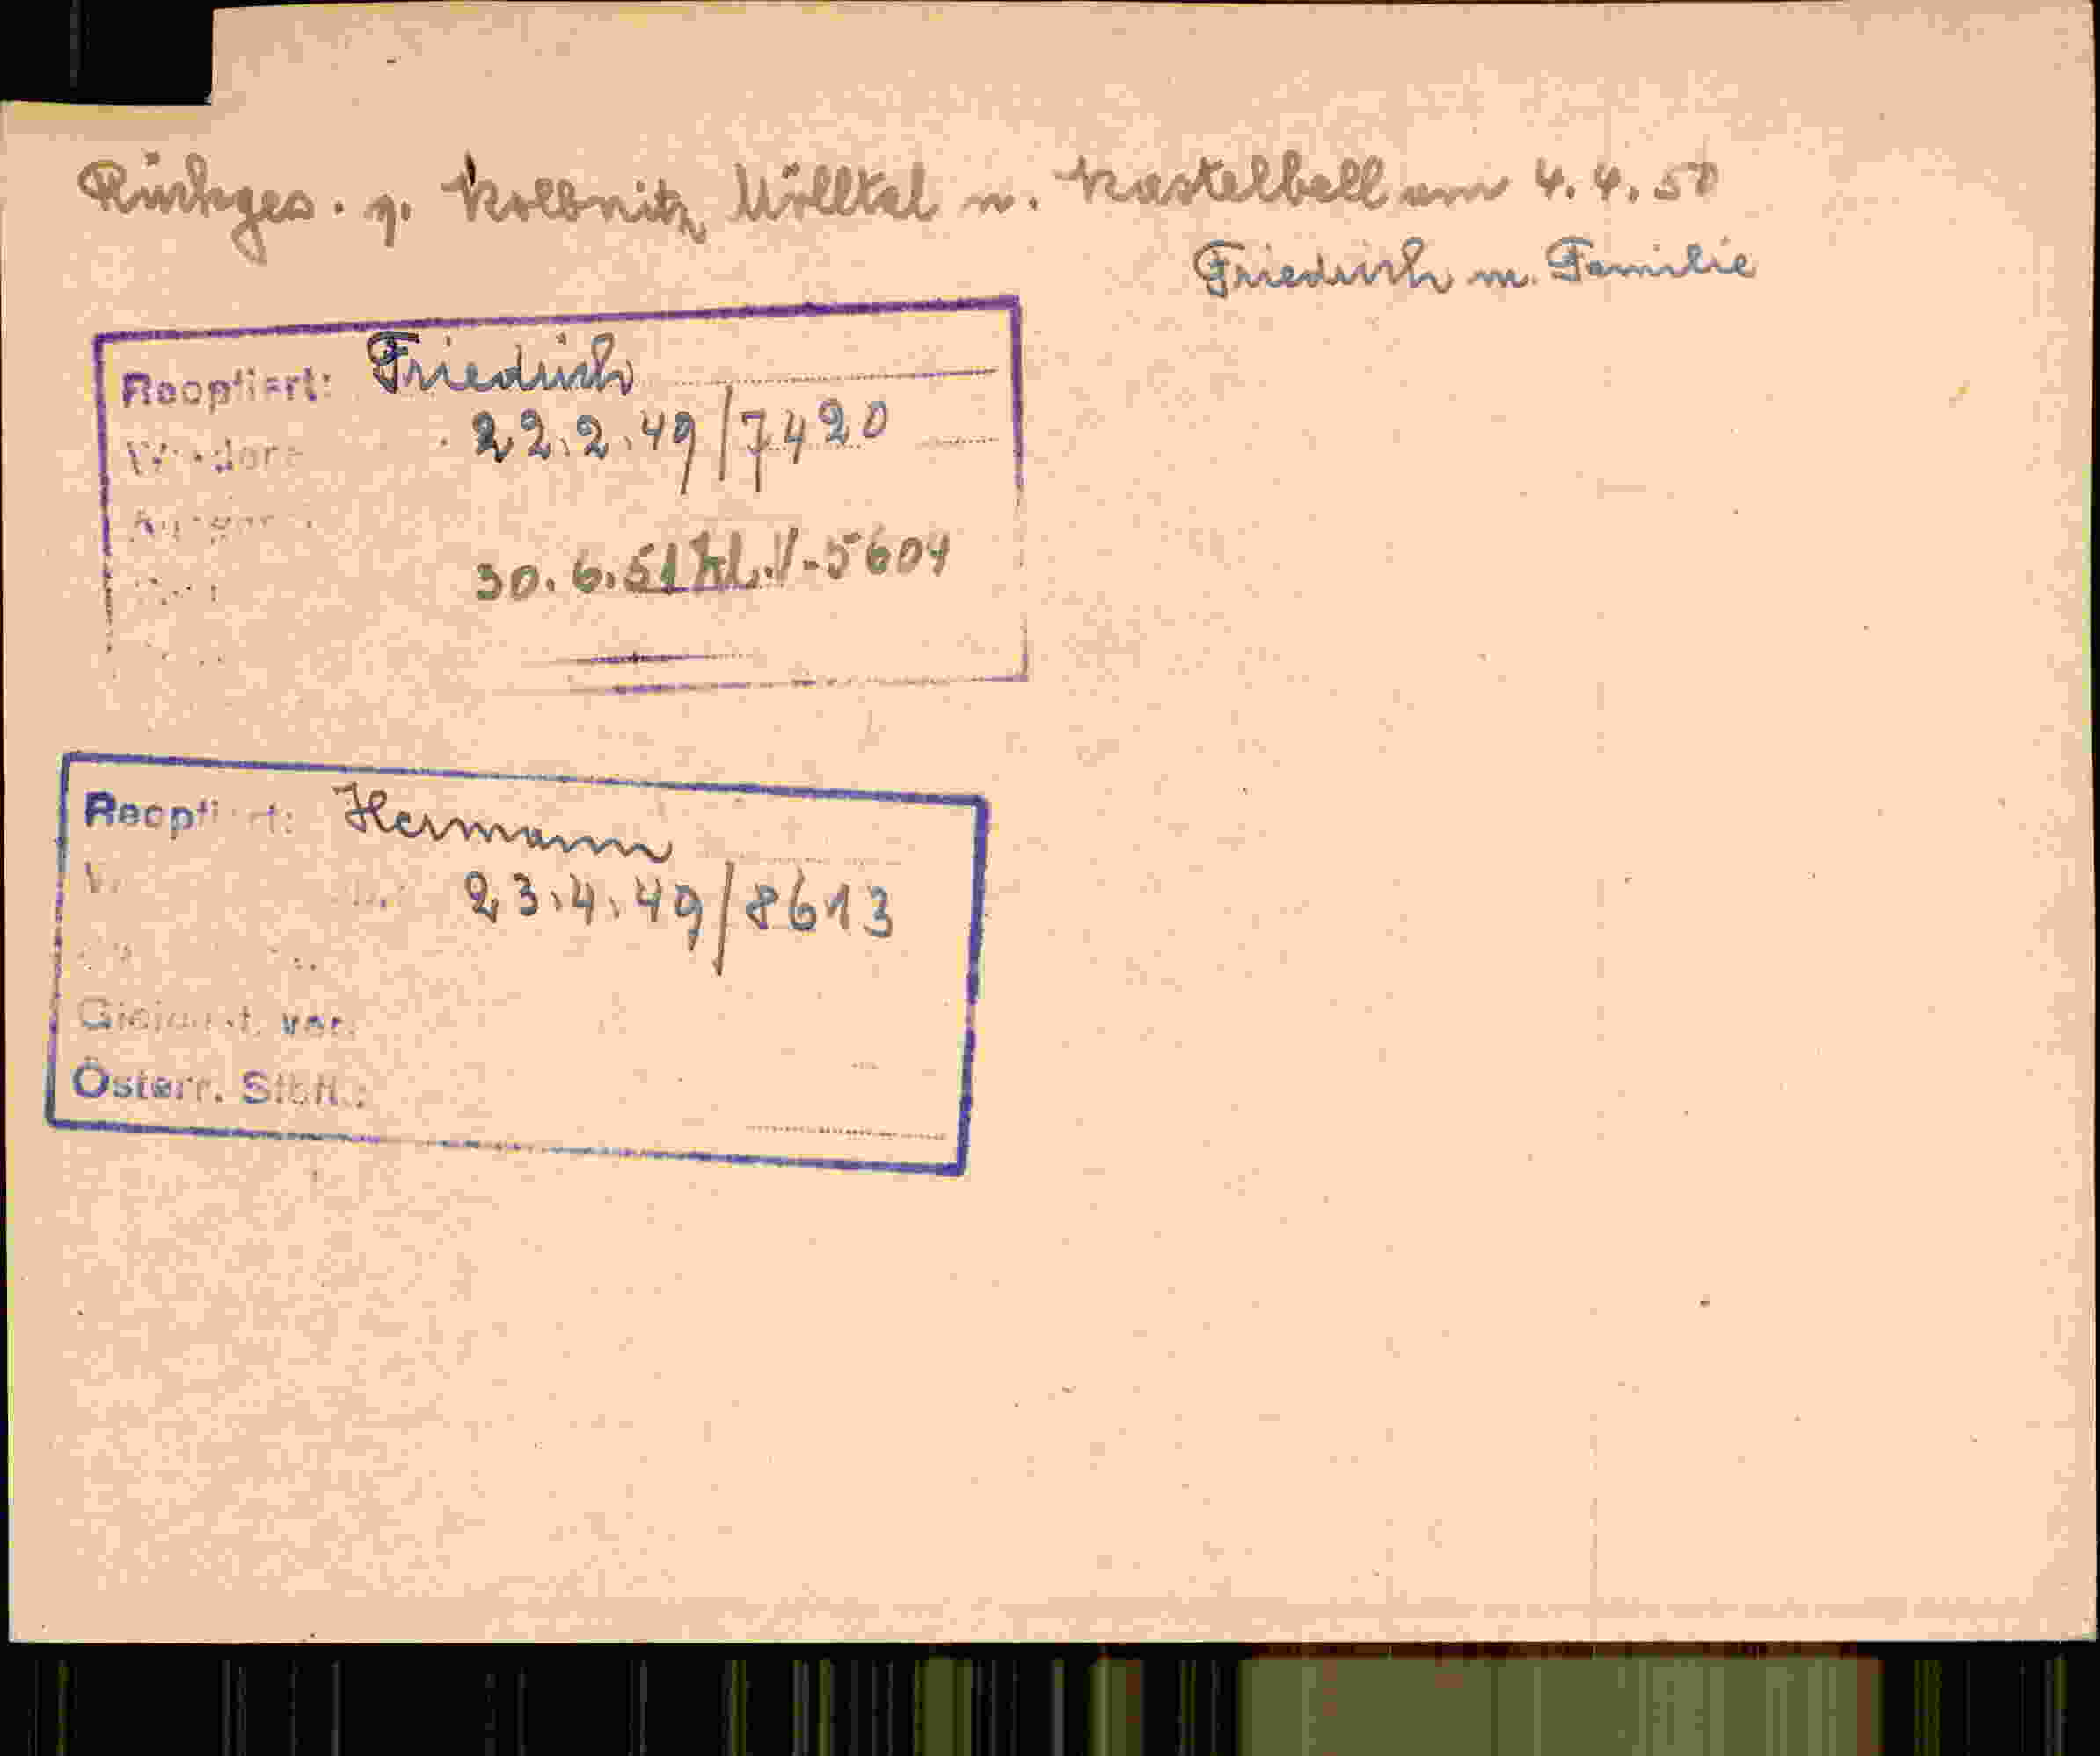 Rückges. v. Kolbnitz Mölltal n. Kastelbell am 4.4.50
Friedrich m. Familie
Reoptiert: Friedrich
22.2.49/7420
30.6.51 Kl.V-5604
Reoptiert: Hermann
23.4.49/8613
Österr. Stbft.: